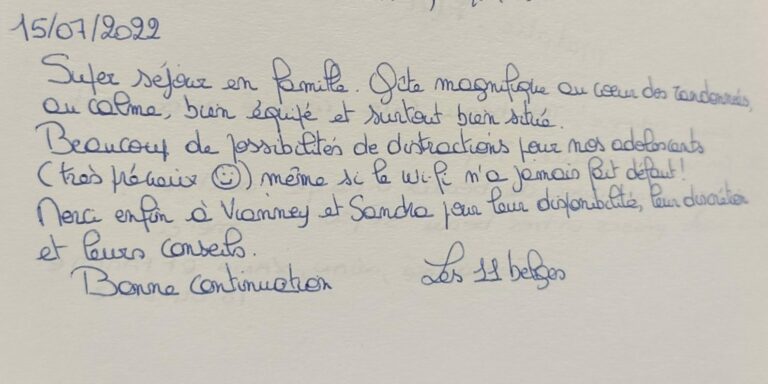 15/07/2022
Super séjour en famille. Gîte magnifique au coeur des randonnées,
au calme, bien équipé et surtout bien situé.
Beaucoup de possibilités de distractions pour nos adolescents
(très précieux ☺) même si le wi-fi n'a jamais fait défaut!
Merci enfin à Vianney et Sandra pour leur disponibilité, leur discrétion
et leurs conseils.
Bonne continuation Les 11 belges